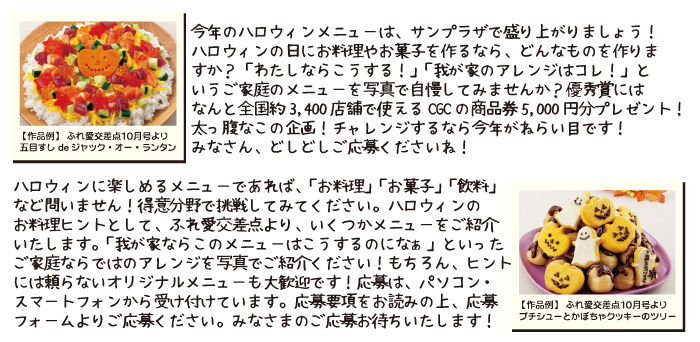 今年のハロウィンメニューは、サンプラザで盛り上がりましょう！
ハロウィンの日にお料理やお菓子を作るなら、どんなものを作りま
すか？「わたしならこうする！」「我が家のアレンジはコレ！」と
いうご家庭のメニューを写真で自慢してみませんか？優秀賞には
なんと全国約3,400店舗で使えるCGCの商品券5,000円分プレゼント！
太っ腹なこの企画！チャレンジするなら今年がねらい目です！
みなさん、どしどしご応募くださいね！
【作品例】 ふれ愛交差点10月号より
五目すし de ジャック・オー・ランタン
ハロウィンに楽しめるメニューであれば、「お料理」「お菓子」「飲料」
など問いません！得意分野で挑戦してみてください。ハロウィンの
お料理ヒントとして、ふれ愛交差点より、いくつかメニューをご紹介
いたします。「我が家ならこのメニューはこうするのになぁ」といった
ご家庭ならではのアレンジを写真でご紹介ください！もちろん、ヒント
には頼らないオリジナルメニューも大歓迎です！応募は、パソコン・
スマートフォンから受け付けています。応募要項をお読みの上、応募
フォームよりご応募ください。みなさまのご応募お待ちいたします！
【作品例】 ふれ愛交差点10月号より
プチシューとかぼちゃクッキーのツリー